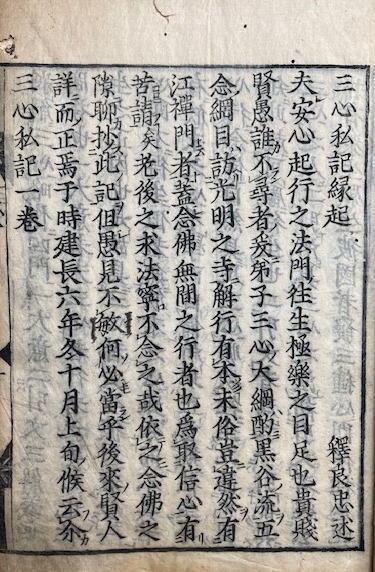 三心私記縁起
釋良忠述
夫安心起行之法門往生極樂之目足也貴賤
賢愚誰不尋者矣弟子三心大綱酌黑谷流五
念綱目訪光明之寺解行有本末俗豈違然有
江禪門者蓋念佛無間之行者也爲取信心有
苦請矣老後之求法寧不念之哉依之念佛之
隙聊抄此記但愚見不敏何必當乎後來賢人
詳而正焉于時建長六年冬十月上旬候云尒
三心私記一卷